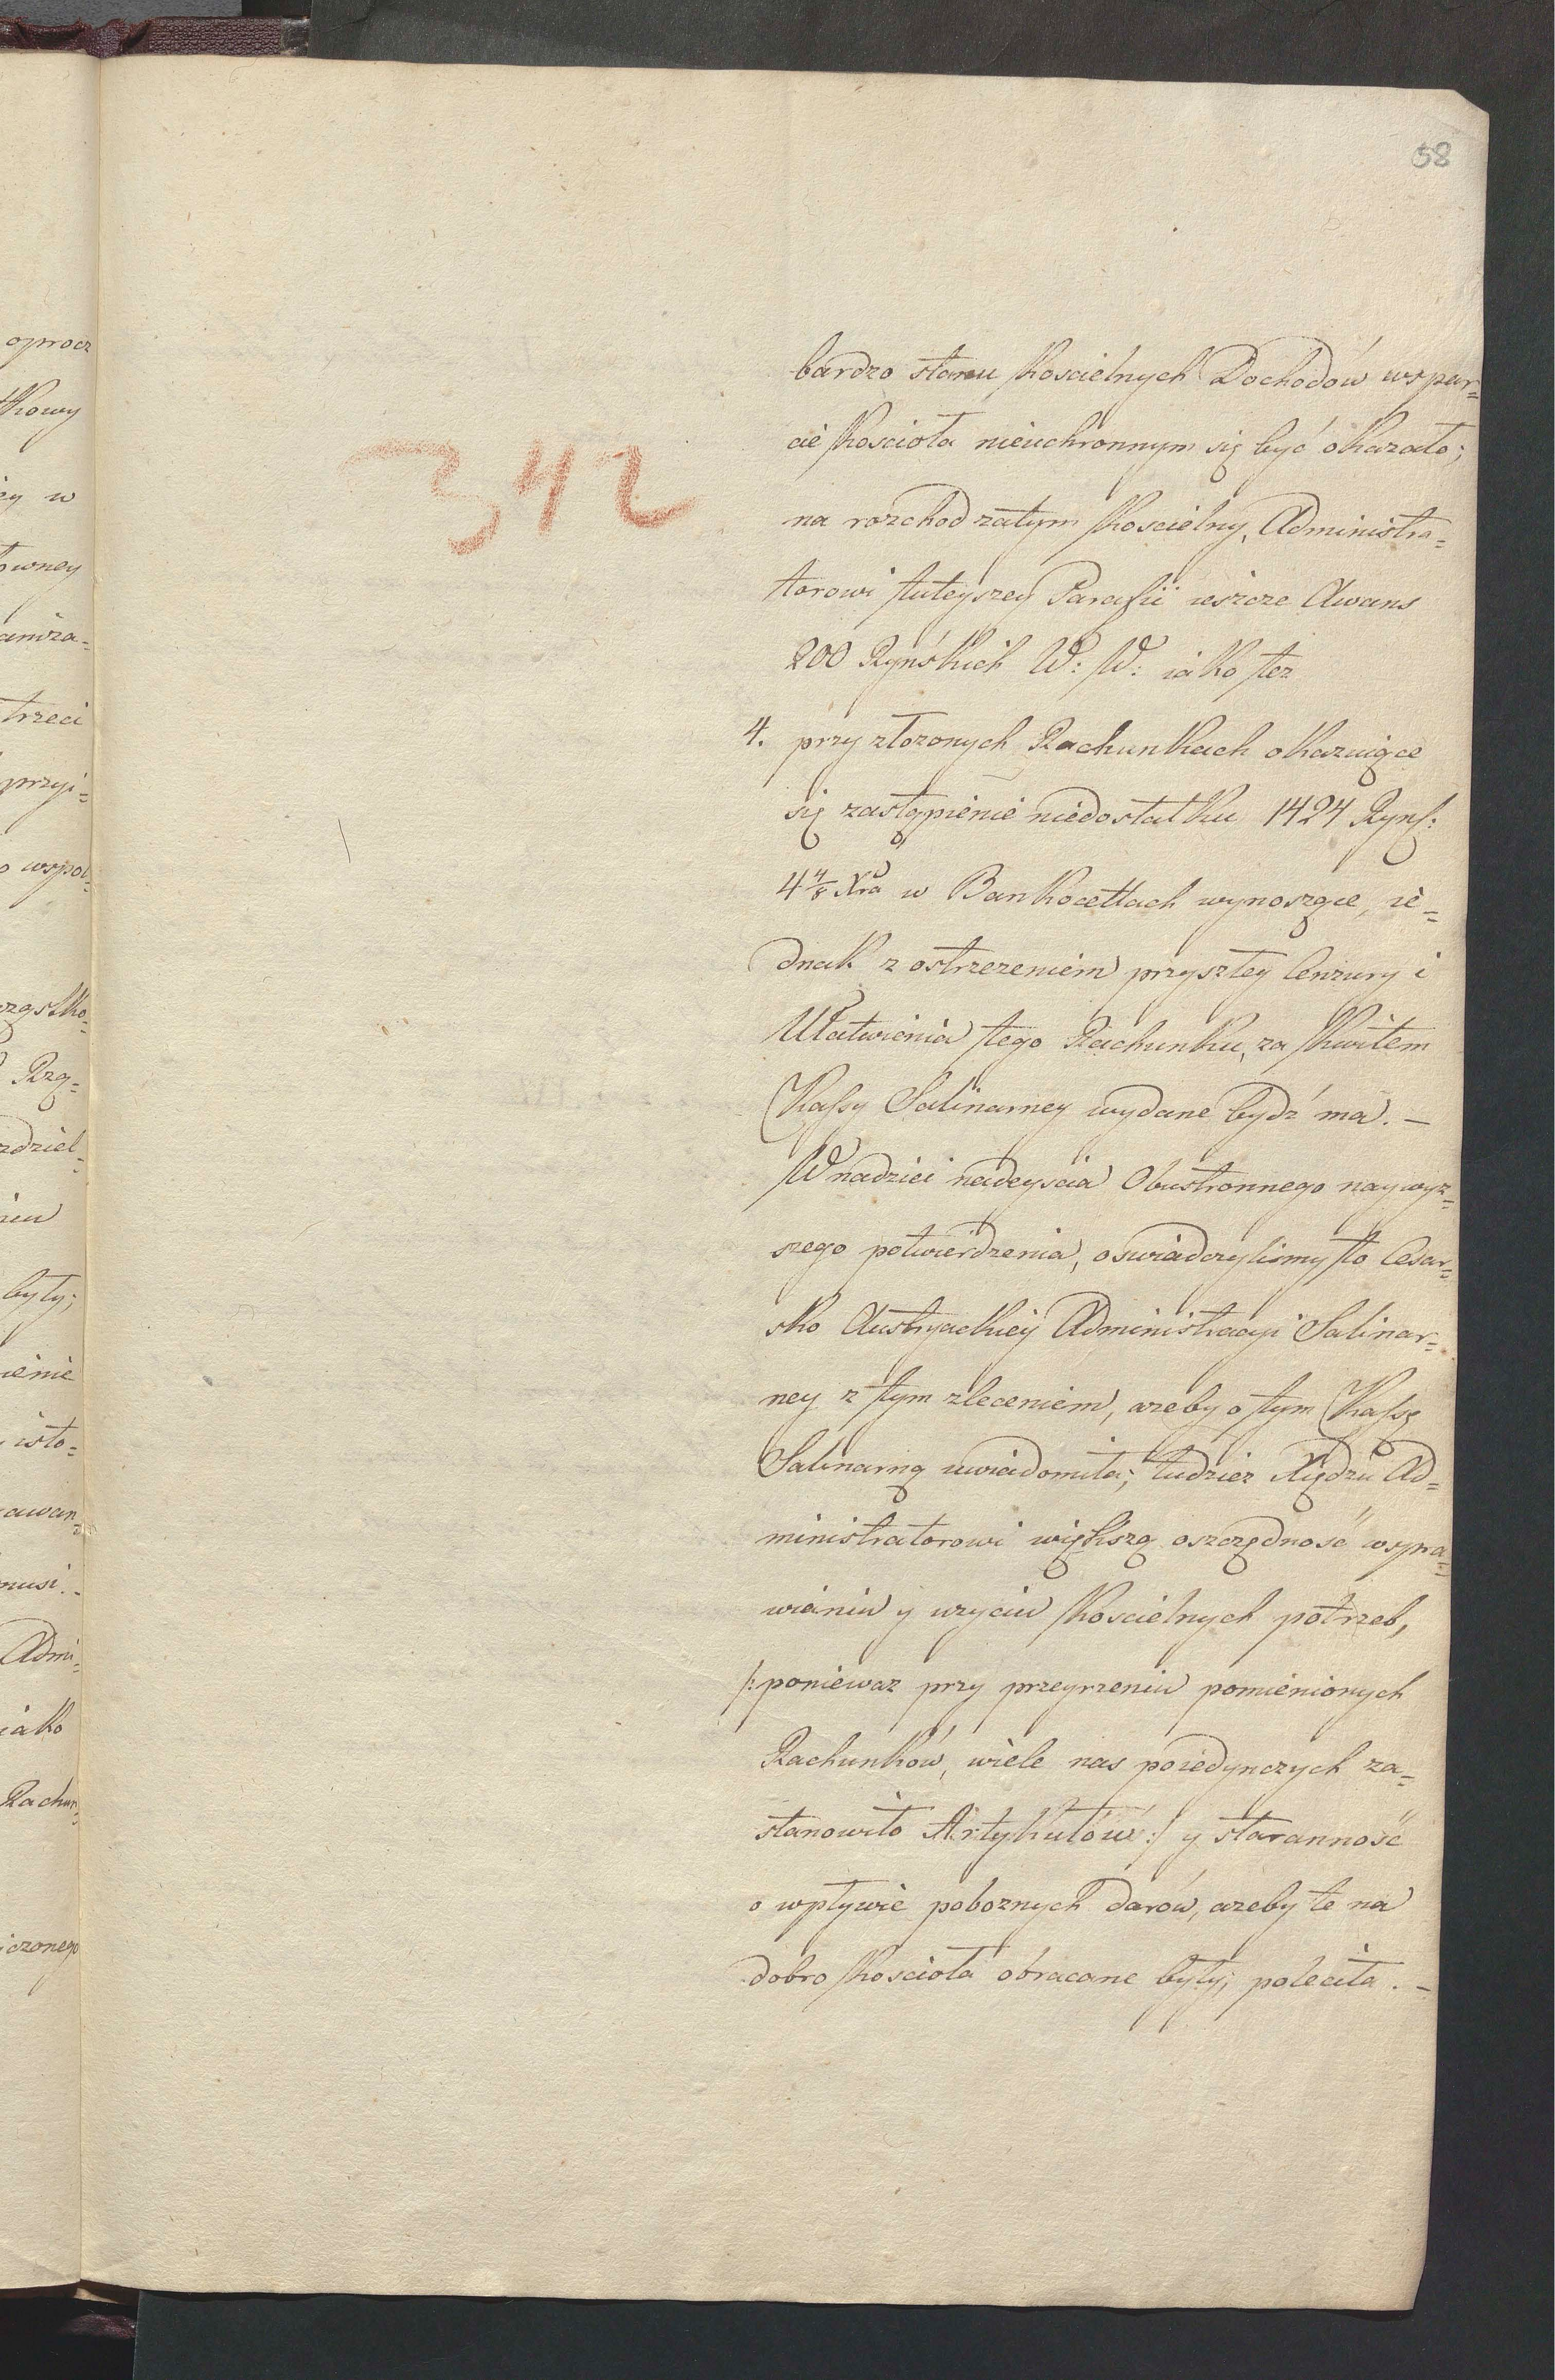 58
342
bardzo stanu Koscielnych Dochodów wspar=
cie Koscioła nieuchronnym się być okazało;
na rozchod zatym Koscielny, Administra=
torowi tuteyszey Parafii ieszcze Awans
200 Ryńskich W: W: iako tez
4. przy złozonych Rachunkach okazuiące
się zastąpienie niedostatku 1424 Ryńs:
4 4/8 Xra w Bankocetlach wynoszące, ie=
dnak z ostrzezeniem przyszłey Cenzury i
Ułatwienia tego Rachunku, za Kwitem
Kassy Salinarney wydane bydź ma. —
W nadziei nadeyscia Obustronnego naywyz=
szego potwierdzenia, oswiadczylismy to Cesar=
sko Austryackiey Administracyi Salinar=
ney z tym zleceniem, azeby o tym Kassę
Salinarną uwiadomiła; tudziez Xiędzu Ad=
ministratorowi większą oszczędność w spra=
wianiu y uzyciu Koscielnych potrzeb,
/: poniewaz przy przeyrzeniu pomienionych
Rachunków, wiele nas poiedynczych za=
stanowiło Artykułów :/ y staranność
o wpływie poboznych darów, azeby te na
dobro Koscioła obracane były; poleciła. —
oprocz
tkowy
w
owney
trzeci
przyi=
wspol=
Rzą=
zdziel=
były;
isto=
awan=
musi. -
Admi=
iako
Rachun=
iczonego